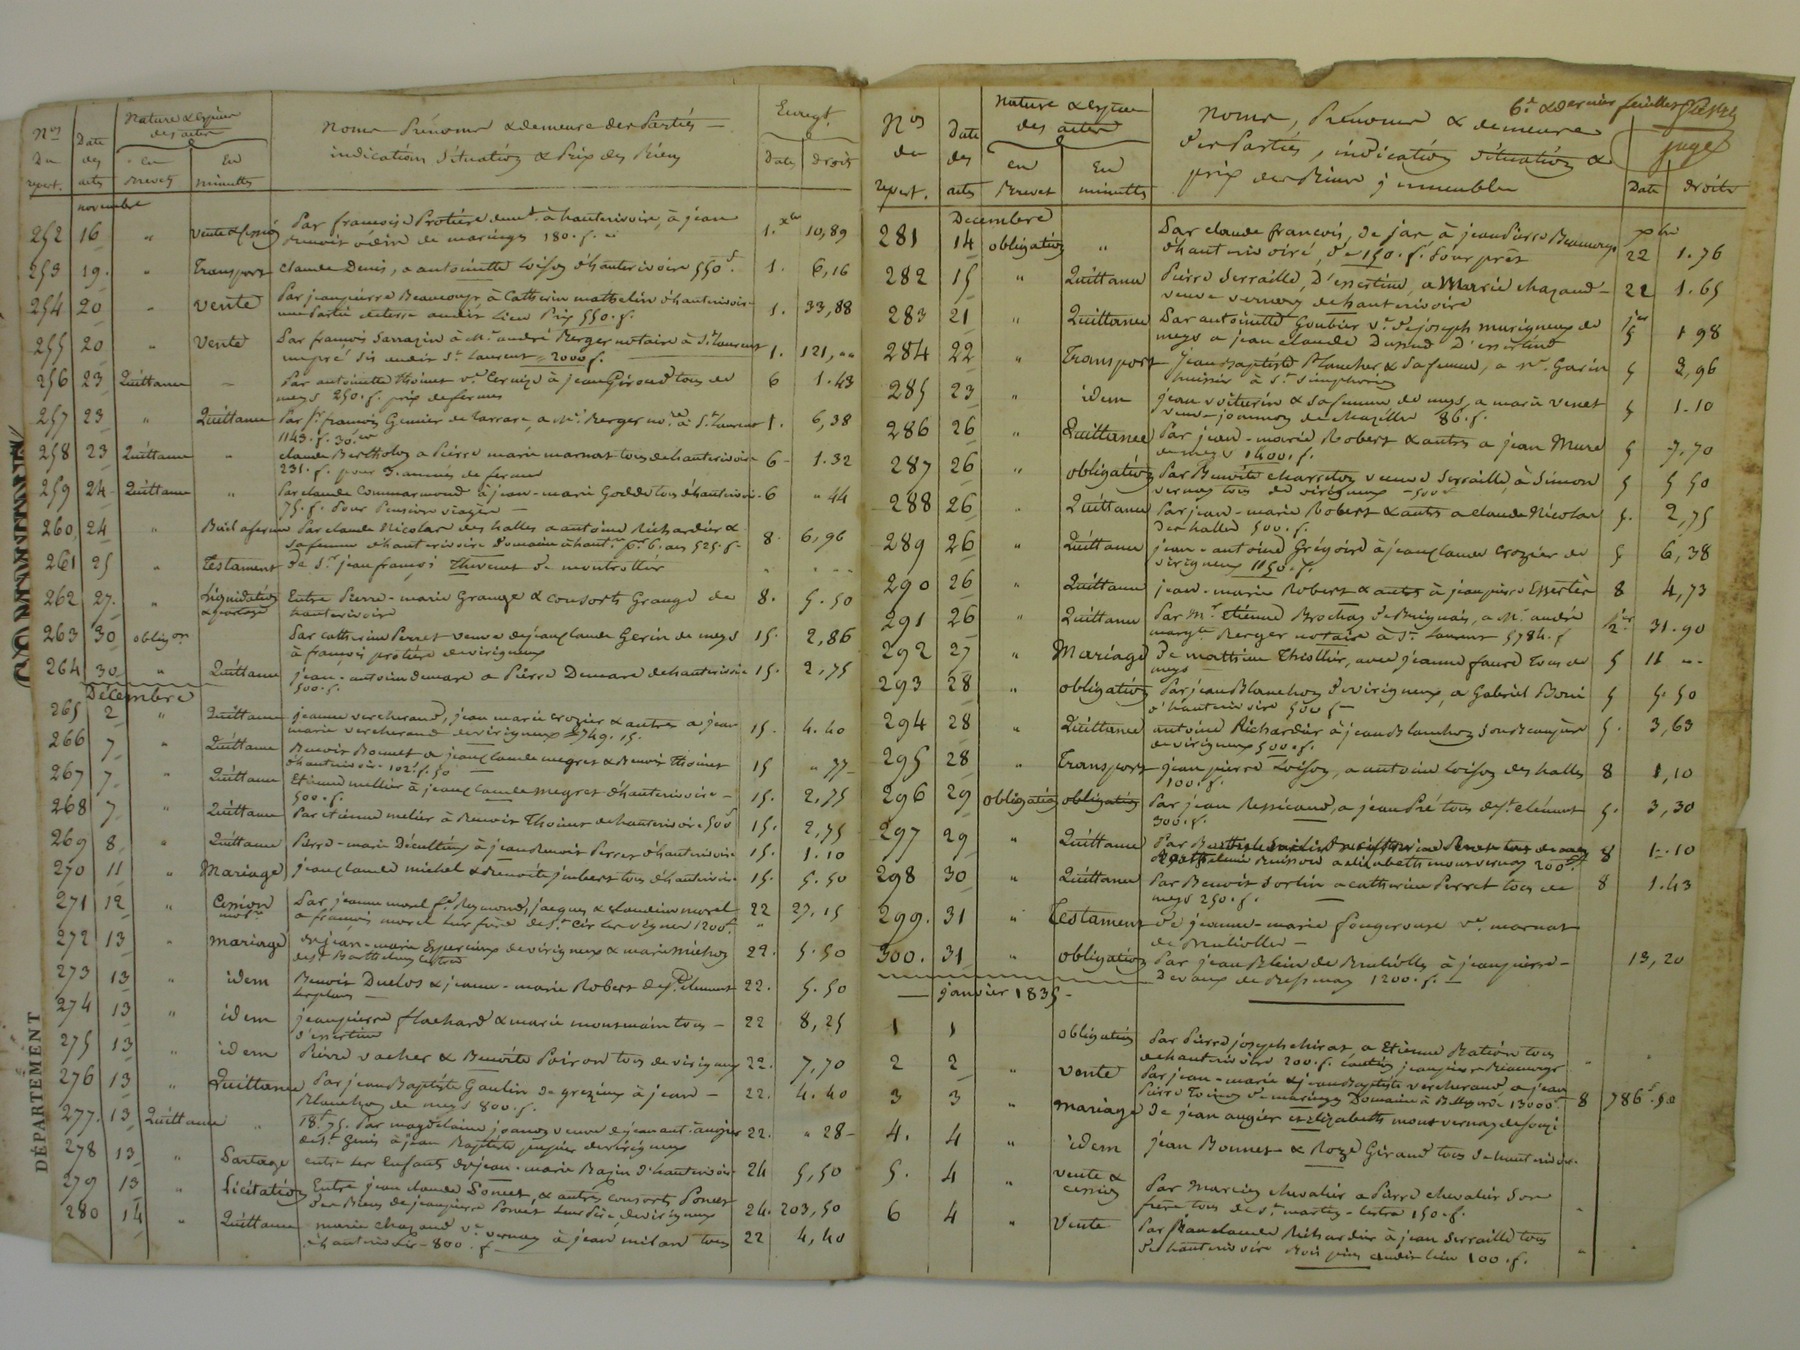 Nos Du repert.
Date des actes
Nature & Espèce des actes
en Brevets
En minuttes
Noms Prénoms & demeure des Parties
indication Situation & Prix des Biens
Enregt.
Date
droits
novembre
252 16 " vente & cession Par françoise Protière à hauterivoire, à jean 1. xbre 10,89
Benoit de maringes 180. f.
253 19. " Transport claude Denis, a antoinette Loison d'hauterivoire 550 f. 1. 6,16
254 20 " vente Par jeanpierre Beaucoup, à Catherine mathelin d'hauterivoire 1. 33,88
une Partie de terre audit Lieu Prix 550. f.
255 20 " Vente Par françois Sarrazin à Me. andré Berger notaire à St. Laurent 1. 121, ""
un pré sis audit St. Laurent = 2000 f.
256 23 Quittance - Par antoinette Thoinet ve. à jean Giroud tous de 6 1.43
meys 250. f. prix de fermes
257 23 " Quittance Par Sr. françois Grenier de tarrare, a Me. Berger nore. à St. Laurent 1. 6,38
1143. f. 30. ces
258 23 Quittance " claude Bertholon a Pierre marie marnat tous de hauterivoire 6 - 1.32
231. f. pour 3. années de ferme
259 24 - Quittance " Par claude Commarmond à jean-marie Goddet tous d'hauterivoire 6 " 44
75. f. Pour Pension viagère -
260 24 " Bail a ferme Par claude Nicolas des halles a antoine Richardier & 8. 6,96
sa femme d'hauterivoire Domaine à haut. pr. 6. ans 525. f.
261 25 " Testament de Sr. jean françois Thivenet de montrottier " - - -
262 27. " Liquidation & partage Entre Pierre-marie Grange & consorts Grange de 8. 5.50
hauterivoire
263 30 obligon. Par catherine Perret veuve de jeanclaude Gerin de meys 15. 2,86
à françois protière de virigneux
264 30 " Quittance jean-antoine demare a Pierre Demare de hauterivoire 15. 2,75
500. f.
Décembre
265 2 " Quittance jeanne vercherand, jean marie crozier & autres a jean 15. 4.40
marie vercherand de virigneux 749. 15.
266 7 " Quittance Benoit Bonnet a jeanclaude megret & Benoit Thoinet 15 " 77 -
d'hauterivoire. 102. f. 50
267 7 " Quittance Etienne mellier à jeanclaude megret d'hauterivoire - 15. 2,75
500. f.
268 7 " Quittance Par etienne melier à Benoit Thoinet de hauterivoire 500 f 15. 2,75
269 8 " Quittance Pierre-marie Décultieux à jean Benoit Perret d'hauterivoire 15. 1.10
270 11 " Mariage jeanclaude michel & Benoite jimbert tous d'hauterivoire. 15. 5.50
271 12 " Cession mobre. Par jeanne morel fe. Reymond, jacques & claudine morel 22 27,15
a françois morel leur frère de St. Cir les vignes 1200 f. "
272 13 " mariage de jean-marie Esparcieux de virigneux & marie michon 22. 5.50
de St. Barthelemy Lestra
273 13 " idem Benoit Duclos & jeanne-marie Robert de St. clement 22. 5.50
les places -
274 13 " idem jeanpierre flachard & marie monsmain tous - 22 8,25
d'essertine
275 13 " idem Pierre vacher & Benoite Poiron tous de virigneux 22. 7,70
276 13 " Quittance Par jeanBaptiste Gaulin de grezieux à jean - 22. 4.40
Blanchon de meys 800. f.
277. 13 Quittance " 18f. 75. Par magdelaine joannon veuve de jean ant. augier 22. " 28 -
de St. Genis à jean Baptiste de virigneux
278 13 " Partage entre les Enfants de jean-marie Bazin d'hauterivoire 24 5,50
279 13 " Licitation Entre jean claude Poncet, & autres consorts Poncet 24. 203,50
des Biens de jeanpierre Poncet leur Père de virigneux
280 14 " Quittance marie chazaud ve. vernay à jean milan tous 22 4,40
d'hauterivoire - 800. f.
COMMUNE
DÉPARTEMENT
6e. & dernier feuillet
juge
Nos du repert.
Date des actes
Nature & Espece des actes
en Brevet
En minuttes
Noms, Prénoms & demeure
des Parties, indication situation &
prix des Biens immeubles
Date
droits
Decembre
281 14 obligation " Par claude françois, de jas à jeanPierre Beaucoup xbre 22 1.76
d'hauterivoire, de 150. f. Pour prêt
282 15 " Quittance Pierre Serraille, D'essertine, a Marie chazaud - 22 1.65
veuve vernay de hauterivoire
283 21 " Quittance Par antoinette Goubier ve. de joseph murigneux de jer 5 1 98
meys a jean claude Dupuid D'essertine
284 22 " Transport jeanBaptiste Plancher & sa femme, a Sr. Garin 5 2,96
huissier à St. simphorien
285 23 " idem jean voiturin & sa femme de meys, a marie venet 5 1.10
veuve joannon de chazelles 86. f.
286 26 " Quittance Par jean-marie Robert & autres a jean Mure 5 7.70
de meys 1400. f.
287 26 " obligation Par Benoite charreton veuve Serraille, à Simon 5 5 50
vernay tous de virigneux - 500 f
288 26 " Quittance Par jean-marie Robert & autres a claude Nicolas 5. 2,75
des halles 500. f.
289 26 " Quittance jean-antoine Grégoire à jeanclaude crozier de 5 6,38
virigneux 1150. f.
290 26 " Quittance jean-marie Robert & autres à jeanpierre Essertel 8 4,73
291 26 " Quittance Par Mr. Etienne Brochay de Brignais, a Me. andré jer 2. 31.90
margte Berger notaire à St. Laurent 5784. f
292 27 " Mariage de mathieu Thollier, avec jeanne faure tous de 5 11 --
meys -
293 28 " obligation Par jean Blanchon de virigneux, a Gabriel Boni 5 5.50
d'hauterivoire 500 f -
294 28 " Quittance antoine Richardier à jean Blanchon son Beaupère 5. 3,63
de virigneux 500. f.
295 28 " Transport jean pierre Loison, a antoine Loison des halles 8 1,10
100. f.
296 29 obligation obligation Par jean Ressicaud, a jean Pré tous de St. clément 5. 3,30
300. f.
297 29 " Quittance Par 8 1.10
Buisson a elizabeth monvernay 200 f.
298 30 " Quittance Par Benoit Sorlin a catherine Perret tous de 8 1.43
meys 250. f. -
299. 31 " Testament de jeanne-marie fougerouse ve. marnat
de Brullolles -
300. 31 " obligation Par jean Blein de Brullolles à jeanpierre - 13,20
Devaux de Bessenay 1200. f. -
janvier 1835 -
1 1 obligation Par Pierre joseph chirat a Etienne Bation tous " "
de hauterivoire 200. f. caution jeanpierre Beaucoup
2 2 " vente Par jean-marie & jean Baptiste vercherand, a jean 8 786 f. 50
Pierre Toinon de maringes Domaine à Bellegarde 13000 f.
3 3 " mariage de jean augier & elizabeth monvernay de souzi
4. 4 " idem jean Bonnet & Roze Giraud tous de hauterivoire.
5. 4 " vente & cession Par Marcien chevalier a Pierre chevalier son "
frère tous de St. martin-Lestra 150. f.
6 4 " Vente Par jeanclaude Richardier à jean Serraille tous " "
de hauterivoire Bois pins audit lieu 100. f.